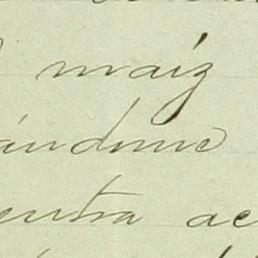 maiz
ándome
entra ac